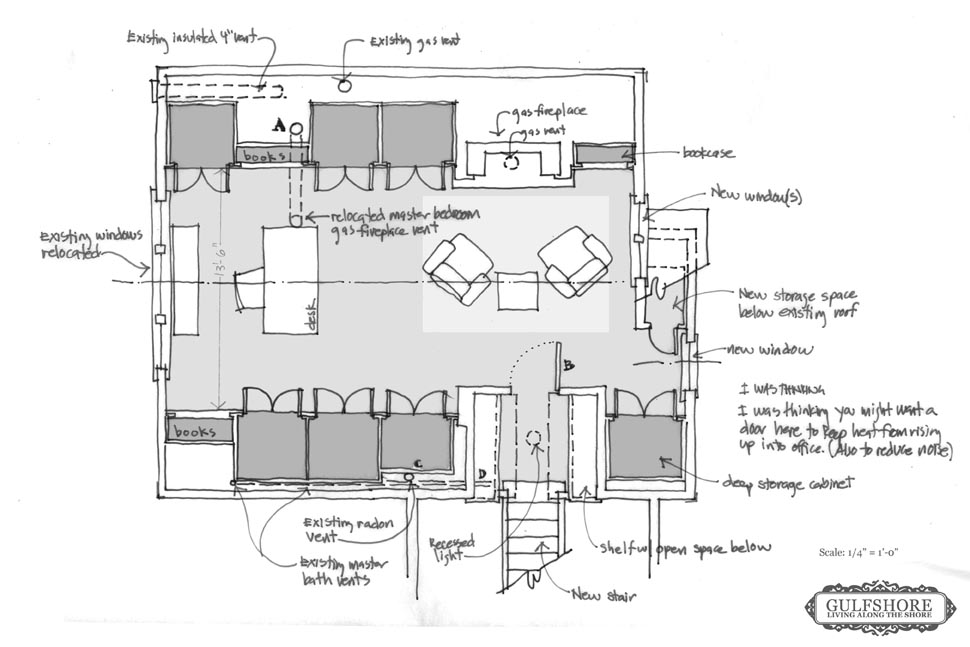 Existing insulated 4" vent
Existing gas vent
A
gas fireplace
gas vent
books
bookcase
relocated master bedroom
gas fireplace vent
New window(s)
Existing windows
relocated
13'-6"
desk
New storage space
below existing roof
new window
B
I WAS THINKING
I was thinking you might want a
door here to keep heat from rising
up into office. (Also to reduce noise)
books
C
D
deep storage cabinet
Existing radon
vent
Recessed
light
shelf w/ open space below
Existing master
bath vents
New stair
Scale: 1/4" = 1'-0"
GULFSHORE
LIVING ALONG THE SHORE